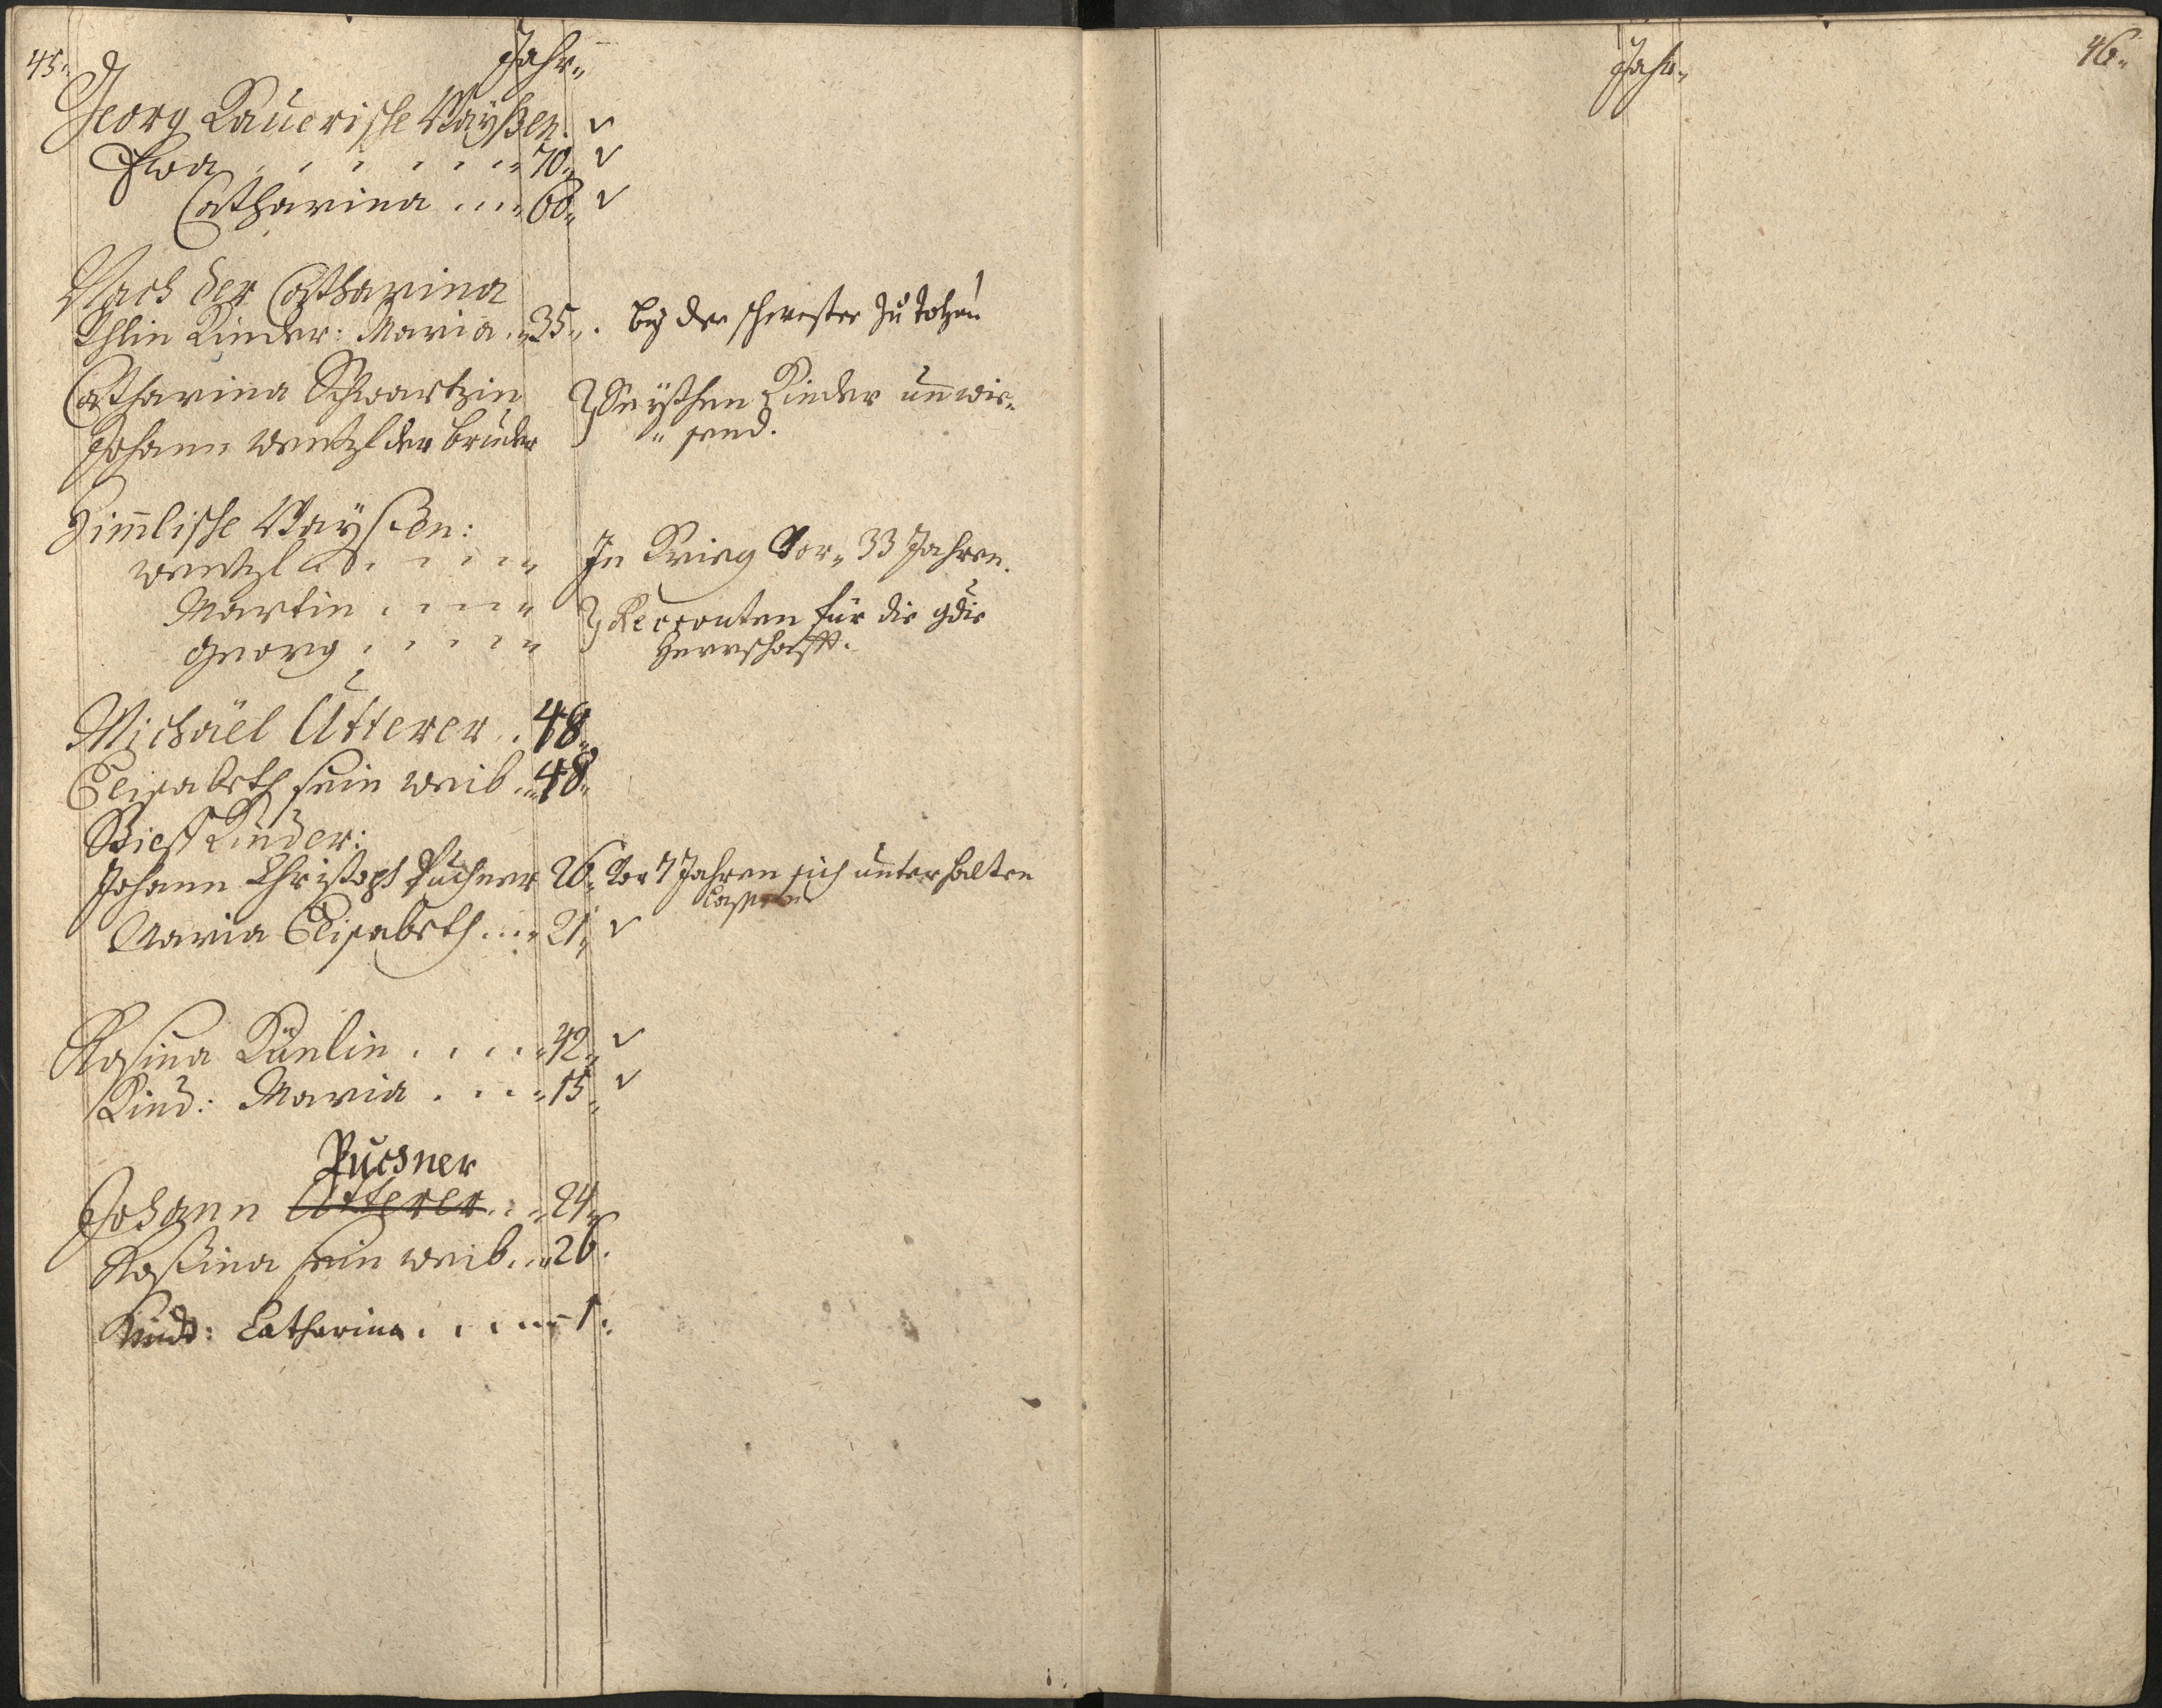 45.
Jahr
Georg Lauerische Waysen. v
Eva . . . . . . 70. v
Catharina . . . 60. v
Nach der Catharina
Ihlin Kinder: Maria . 35. bey der schwester zu
Catharina Schwartzin } Seynd Kinder unwis-
Johann Wentzl der bruder } send.
Himmlische Waysen:
Wentzl . . . . In Krieg vor 33 Jahren.
Martin . . . . } Recrouten für die gdie
Georg . . . . } Herrschafft.
Michäel Utterer . . 48.
Elisabeth sein weib . 48.
Stieff Kinder:
Johann Christoph Puchner 26. Vor 7 Jahren sich unterhalten
lassen
Maria Elisabeth . . . 21. v
Rosina . . . . 42. v
Kind: Maria . . . 15. v
Puchner
Johann Utterer . . 24.
Rosina sein weib . . 26.
Kindt: Catharina . . . . 1.
Jahr
46.